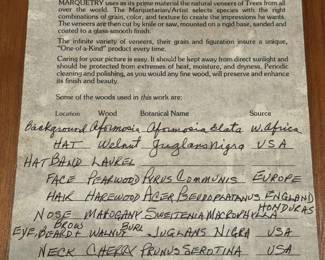 MARQUETRY uses as its prime material the natural veneers of Trees from all
over the world. The Marquetarian/Artist selects species with the right
combinations of grain, color, and texture to create the impressions he wants.
The veneers are then cut by knife or saw, mounted on a rigid base, sanded and
coated to a glass-smooth finish.
The infinite variety of veneers, their grain and figuration insure a unique,
"One-of-a-Kind" product every time.
Caring for your picture is easy. It should be kept away from direct sunlight and
should be protected from extremes of heat, moisture, and dryness. Periodic
cleaning and polishing, as you would any fine wood, will preserve and enhance
its finish and beauty.
Some of the woods used in this work are:
Location Wood Botanical Name Source
Background Aformosia Aformosia Elata W. Africa
HAT Walnut Juglans Nigra USA
HAT BAND LAUREL
FACE PEARWOOD PYRUS COMMUNIS EUROPE
HAIR HAREWOOD ACER PSEUDOPLATANUS ENGLAND
NOSE MAHOGANY SWEITENIA MACROPHYLLA HONDURAS
EYE, BROW BEARD & WALNUT BURL JUGLANS NIGRA USA
NECK CHERRY PRUNUS SEROTINA USA